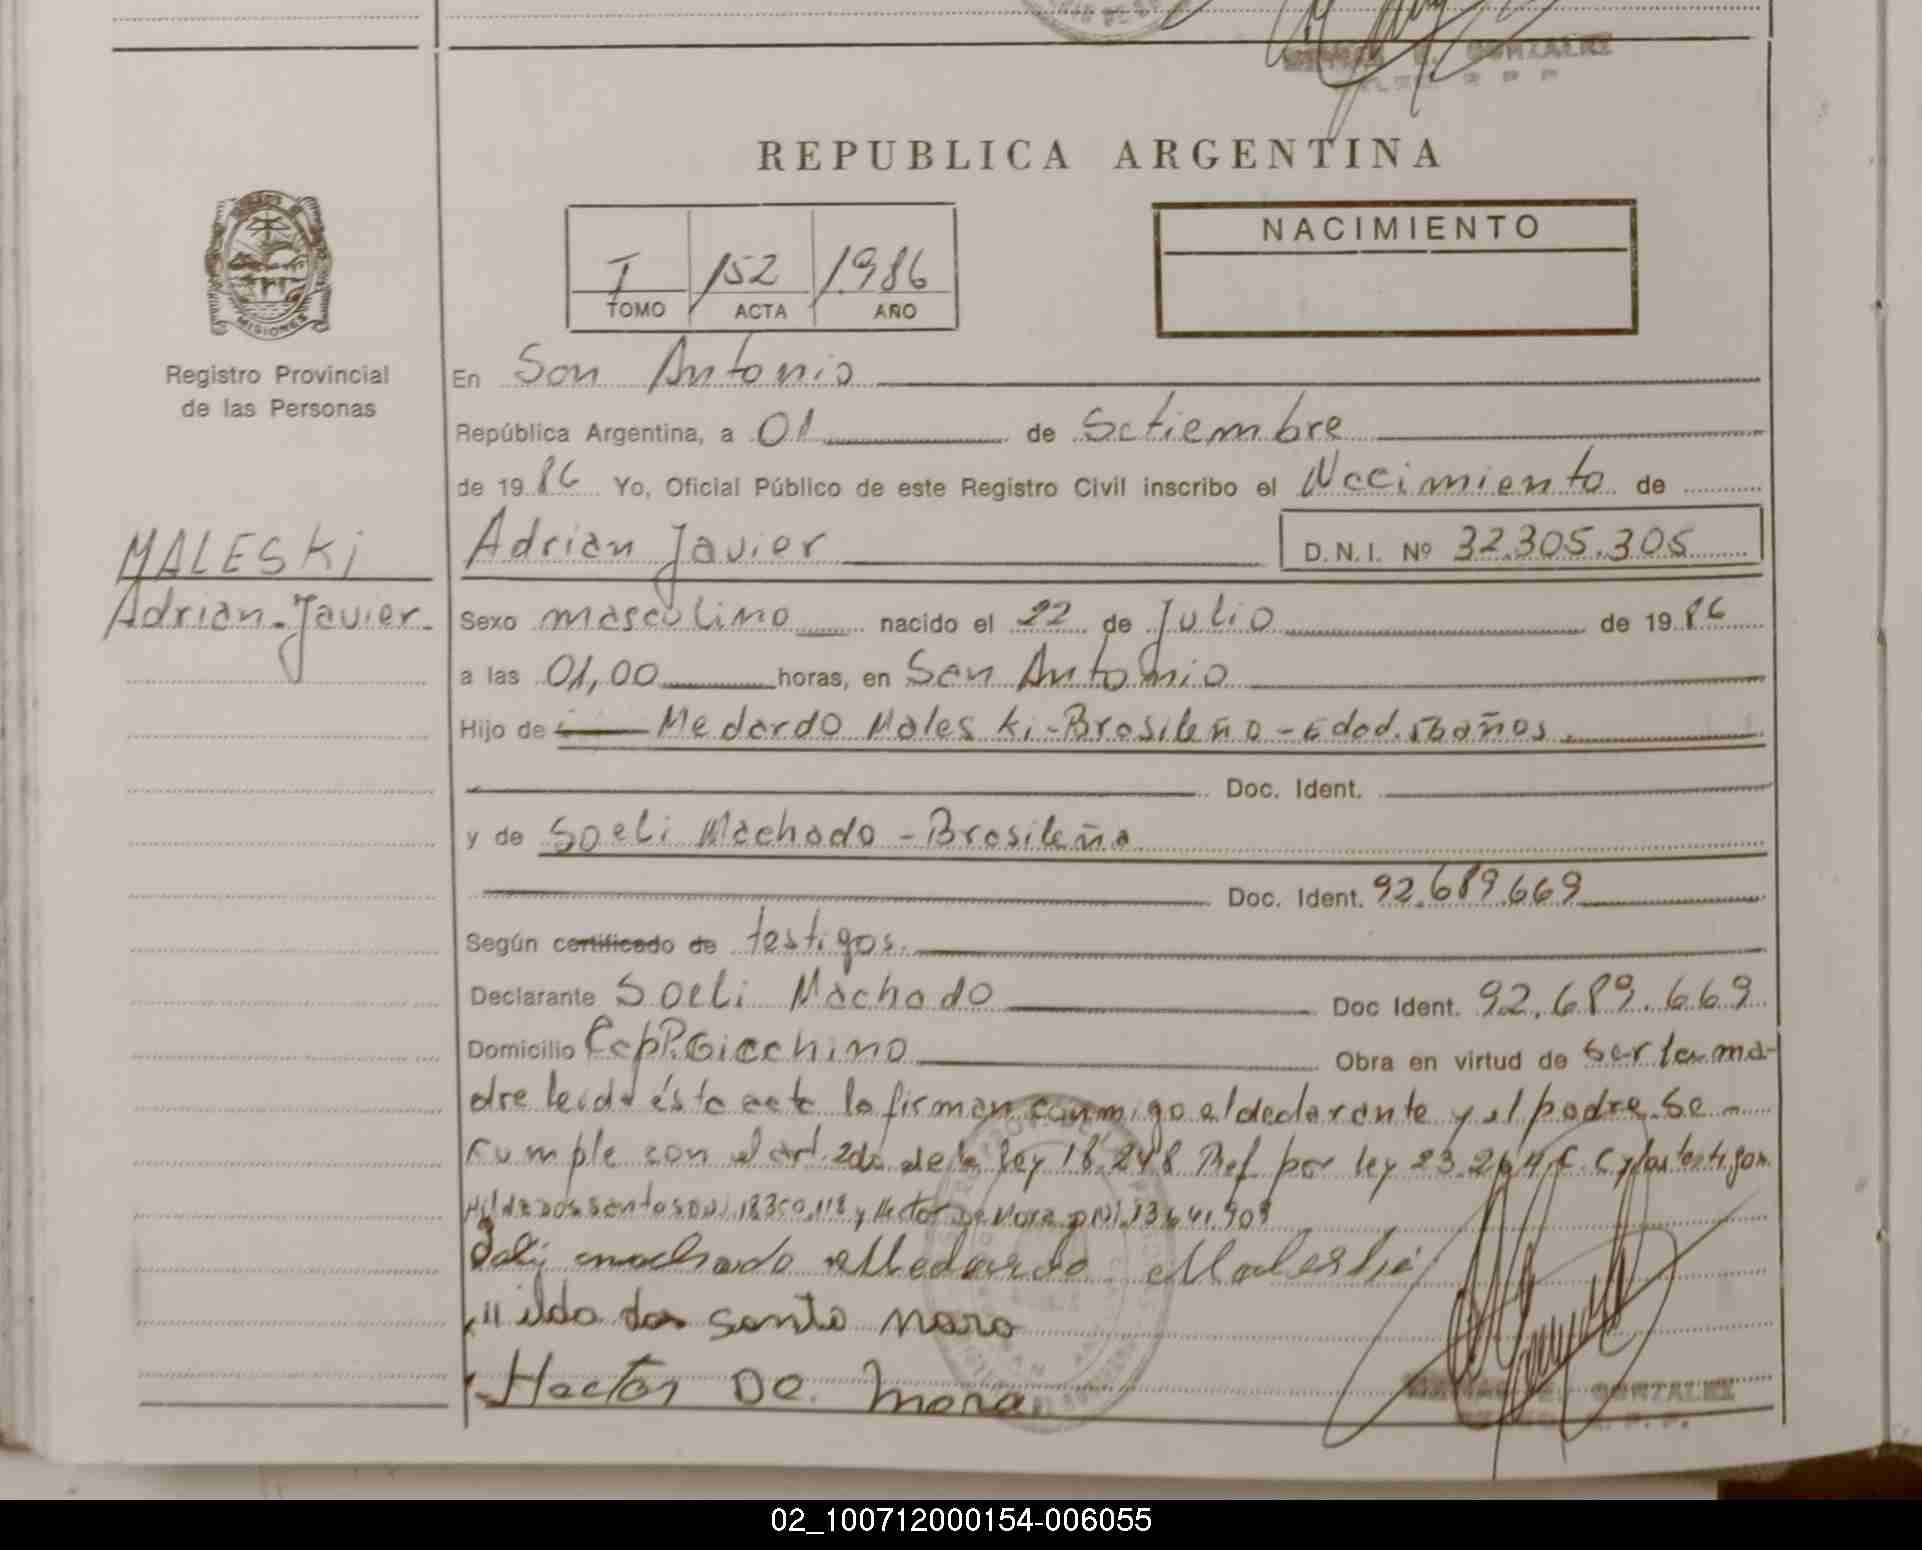 GONZALEZ
REPUBLICA ARGENTINA
NACIMIENTO
I 152 1986
TOMO ACTA AÑO
MISIONES
Registro Provincial
de las Personas
En San Antonio
República Argentina, a 01 de Setiembre
de 19 86 Yo, Oficial Público de este Registro Civil inscribo el Nacimiento de
MALESKI
Adrian Javier D.N.I. Nº 32.305.305
Adrian Javier
Sexo masculino nacido el 22 de Julio de 19 86
a las 01,00 horas, en San Antonio
Hijo de Medardo Maleski - Brasileño - Edad. años
Doc. Ident.
y de Soeli Machado - Brasileña
Doc. Ident. 92.689.669
Según certificado de testigos.
Declarante Soeli Machado Doc Ident. 92.689.669
Domicilio Obra en virtud de ser la ma-
dre leida ésta acta la firman conmigo el declarante y el padre. Se
cumple con el art. 2do de la Ley 18.248 por ley 23.264 y los testigos
y Hector De Mora DNI. 13.641.909
machado Medardo Maleski
Hilda dos santo mora
Hector De. mora
GONZALEZ
02_100712000154-006055